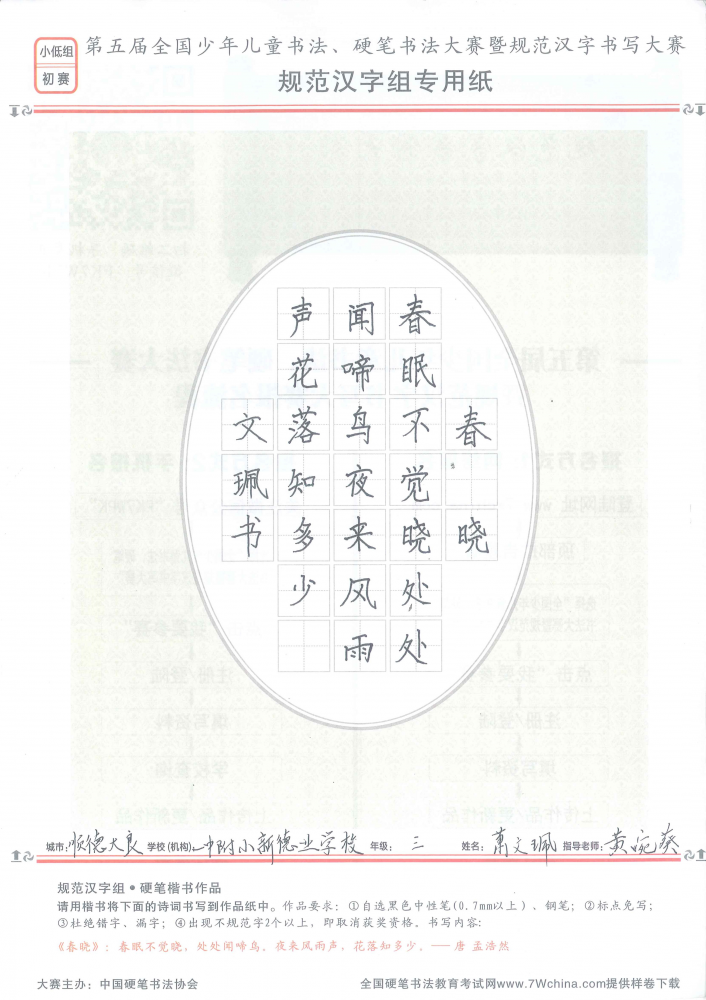 小低组
初赛
第五届全国少年儿童书法、硬笔书法大赛暨规范汉字书写大赛
规范汉字组专用纸
春晓
春眠不觉晓处处
闻啼鸟夜来风雨
声花落知多少
文珮书
城市：顺德大良 学校(机构)：一中附小新德业学校 年级：三 姓名：萧文珮 指导老师：黄宛葵
规范汉字组•硬笔楷书作品
请用楷书将下面的诗词书写到作品纸中。作品要求：①自选黑色中性笔(0.7mm以上）、钢笔；②标点免写；
③杜绝错字、漏字；④出现不规范字2个以上，即取消获奖资格。书写内容：
《春晓》：春眠不觉晓，处处闻啼鸟。夜来风雨声，花落知多少。——唐 孟浩然
大赛主办：中国硬笔书法协会
全国硬笔书法教育考试网www.7Wchina.com提供样卷下载